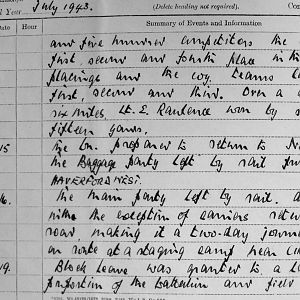 July 1943.
(Delete heading not required).
Date Hour Summary of Events and Information
and five hundred competitors the
first, second and fourth place in the
placings and the coy. teams
first, second and third. Over a
six miles, Lt. E. Rantance won by
fifteen yards.
15 The bn. prepared to return to
the Baggage party left by rail from
HAVERFORDWEST.
16. The main party left by rail.
with the exception of carriers return
road making it a two-day journ
en route at a staging camp near
19. Block leave was granted to a
proportion of the battalion and field